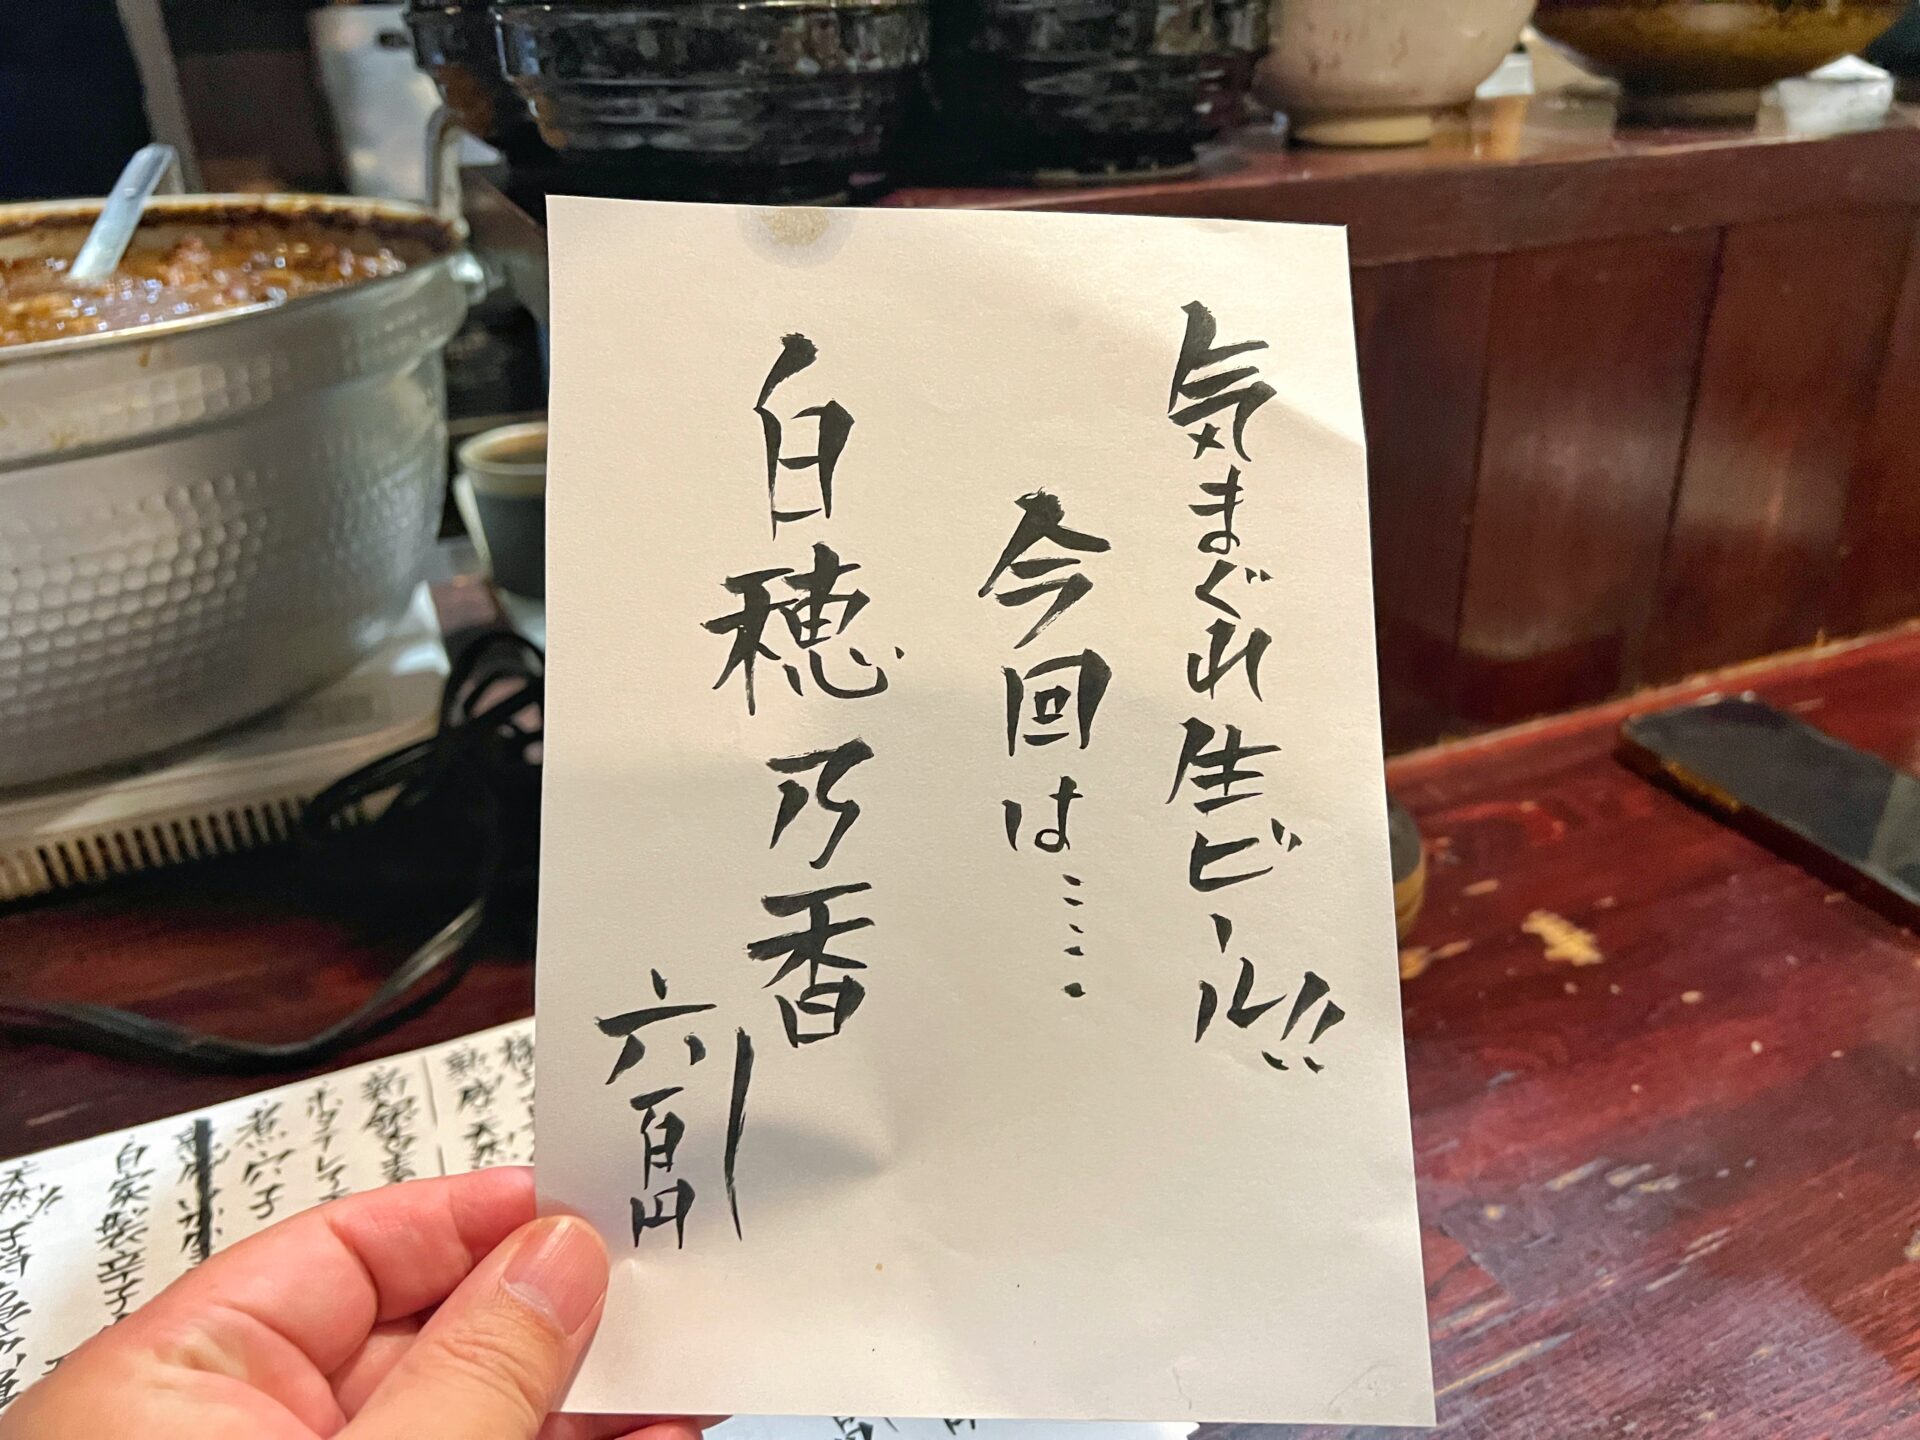 気まぐれ生ビール!!
今回は・・・・
白穂乃香
六百円
新銀杏
煮穴子
自家製辛子
天然